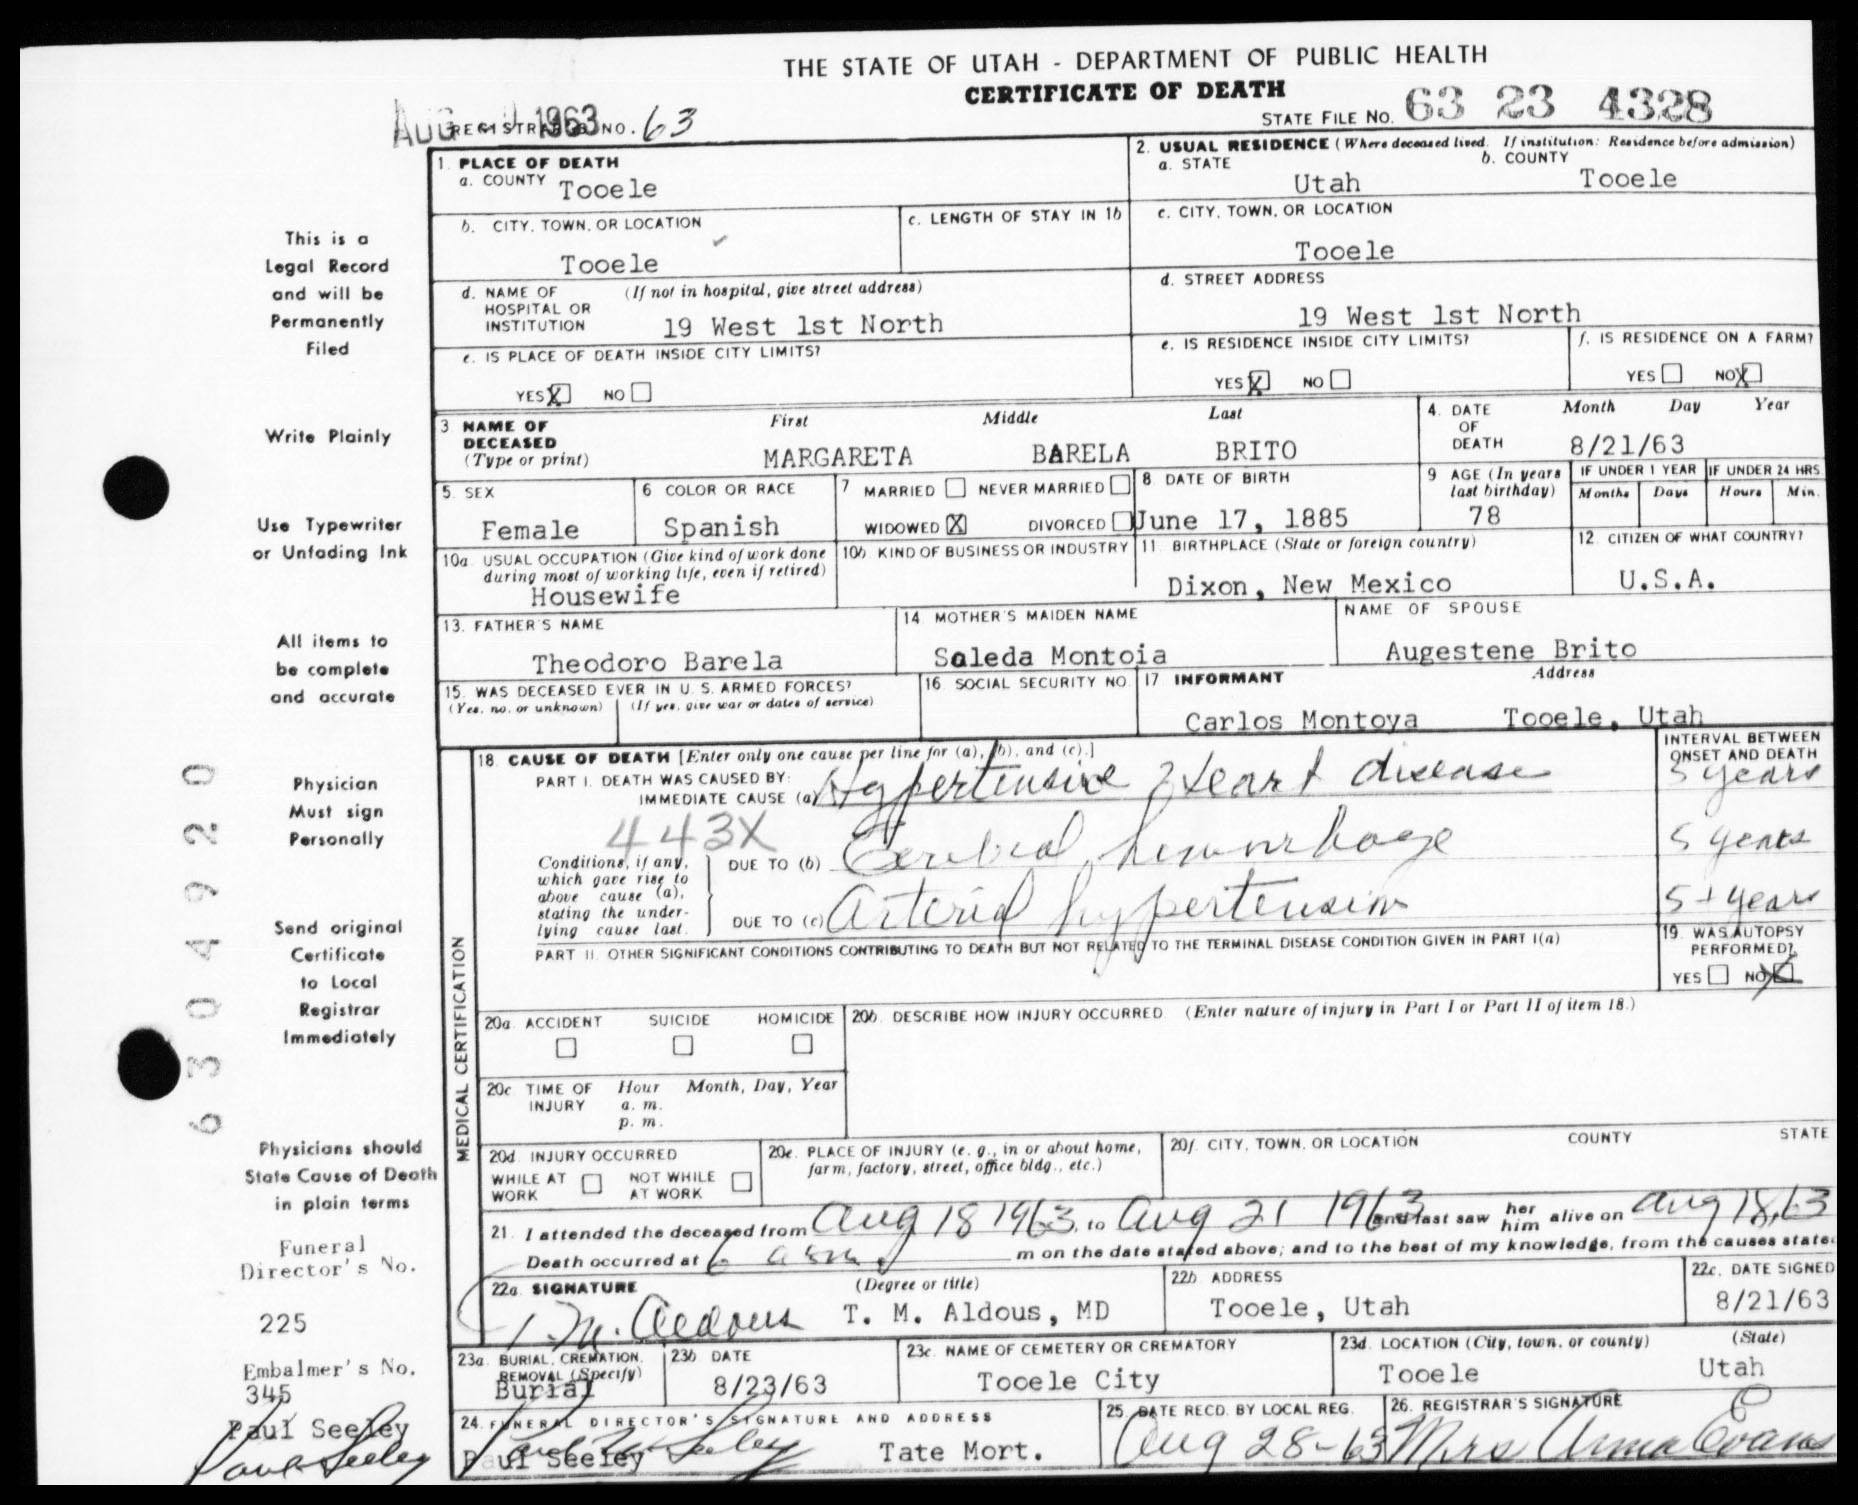 THE STATE OF UTAH - DEPARTMENT OF PUBLIC HEALTH
CERTIFICATE OF DEATH
AUG 1963
REGISTRAR'S NO. 63
STATE FILE NO. 63 23 4328
1. PLACE OF DEATH
a. COUNTY Tooele
2. USUAL RESIDENCE (Where deceased lived. If institution: Residence before admission)
a. STATE Utah
b. COUNTY Tooele
b. CITY, TOWN, OR LOCATION
Tooele
c. LENGTH OF STAY IN 1b
c. CITY, TOWN, OR LOCATION
Tooele
d. NAME OF HOSPITAL OR INSTITUTION (If not in hospital, give street address)
19 West 1st North
d. STREET ADDRESS
19 West 1st North
e. IS PLACE OF DEATH INSIDE CITY LIMITS?
YES X NO
e. IS RESIDENCE INSIDE CITY LIMITS?
YES X NO
f. IS RESIDENCE ON A FARM?
YES NO X
3 NAME OF DECEASED (Type or print)
First Middle Last
MARGARETA BARELA BRITO
4. DATE OF DEATH
Month Day Year
8/21/63
5. SEX
Female
6 COLOR OR RACE
Spanish
7 MARRIED NEVER MARRIED
WIDOWED X DIVORCED
8 DATE OF BIRTH
June 17, 1885
9 AGE (In years last birthday)
78
IF UNDER 1 YEAR
Months Days
IF UNDER 24 HRS.
Hours Min.
10a. USUAL OCCUPATION (Give kind of work done during most of working life, even if retired)
Housewife
10b. KIND OF BUSINESS OR INDUSTRY
11. BIRTHPLACE (State or foreign country)
Dixon, New Mexico
12. CITIZEN OF WHAT COUNTRY?
U.S.A.
13. FATHER'S NAME
Theodoro Barela
14 MOTHER'S MAIDEN NAME
Saleda Montoia
NAME OF SPOUSE
Augestene Brito
15. WAS DECEASED EVER IN U. S. ARMED FORCES?
(Yes, no, or unknown) (If yes, give war or dates of service)
16 SOCIAL SECURITY NO.
17 INFORMANT Address
Carlos Montoya Tooele, Utah
18. CAUSE OF DEATH [Enter only one cause per line for (a), (b), and (c).]
INTERVAL BETWEEN ONSET AND DEATH
PART I. DEATH WAS CAUSED BY:
IMMEDIATE CAUSE (a) Hypertensive Heart disease 5 years
443X
Conditions, if any, which gave rise to above cause (a), stating the underlying cause last.
DUE TO (b) Cerebral hemorrhage 5 years
DUE TO (c) Arterial hypertension 5+ years
PART II. OTHER SIGNIFICANT CONDITIONS CONTRIBUTING TO DEATH BUT NOT RELATED TO THE TERMINAL DISEASE CONDITION GIVEN IN PART I(a)
19. WAS AUTOPSY PERFORMED?
YES NO X
20a. ACCIDENT SUICIDE HOMICIDE
20b. DESCRIBE HOW INJURY OCCURRED. (Enter nature of injury in Part I or Part II of item 18.)
20c TIME OF INJURY Hour Month, Day, Year
a. m.
p. m.
20d. INJURY OCCURRED
WHILE AT WORK NOT WHILE AT WORK
20e. PLACE OF INJURY (e. g., in or about home, farm, factory, street, office bldg., etc.)
20f. CITY, TOWN, OR LOCATION COUNTY STATE
21. I attended the deceased from Aug 18 1963, to Aug 21 1963 and last saw her him alive on Aug 18, 63
Death occurred at 6 a.m. m on the date stated above; and to the best of my knowledge, from the causes state
22a. SIGNATURE (Degree or title)
T.M. Aldous T. M. Aldous, MD
22b ADDRESS
Tooele, Utah
22c. DATE SIGNED
8/21/63
23a. BURIAL, CREMATION, REMOVAL (Specify)
Burial
23b DATE
8/23/63
23c. NAME OF CEMETERY OR CREMATORY
Tooele City
23d. LOCATION (City, town, or county) (State)
Tooele Utah
24. FUNERAL DIRECTOR'S SIGNATURE AND ADDRESS
Paul Seeley Tate Mort.
25. DATE RECD. BY LOCAL REG.
Aug 28-63
26. REGISTRAR'S SIGNATURE
Mrs Evans
MEDICAL CERTIFICATION
This is a
Legal Record
and will be
Permanently
Filed
Write Plainly
Use Typewriter
or Unfading Ink
All items to
be complete
and accurate
Physician
Must sign
Personally
Send original
Certificate
to Local
Registrar
Immediately
Physicians should
State Cause of Death
in plain terms
Funeral
Director's No.
225
Embalmer's No.
345
Paul Seeley
Paul Seeley
6304920